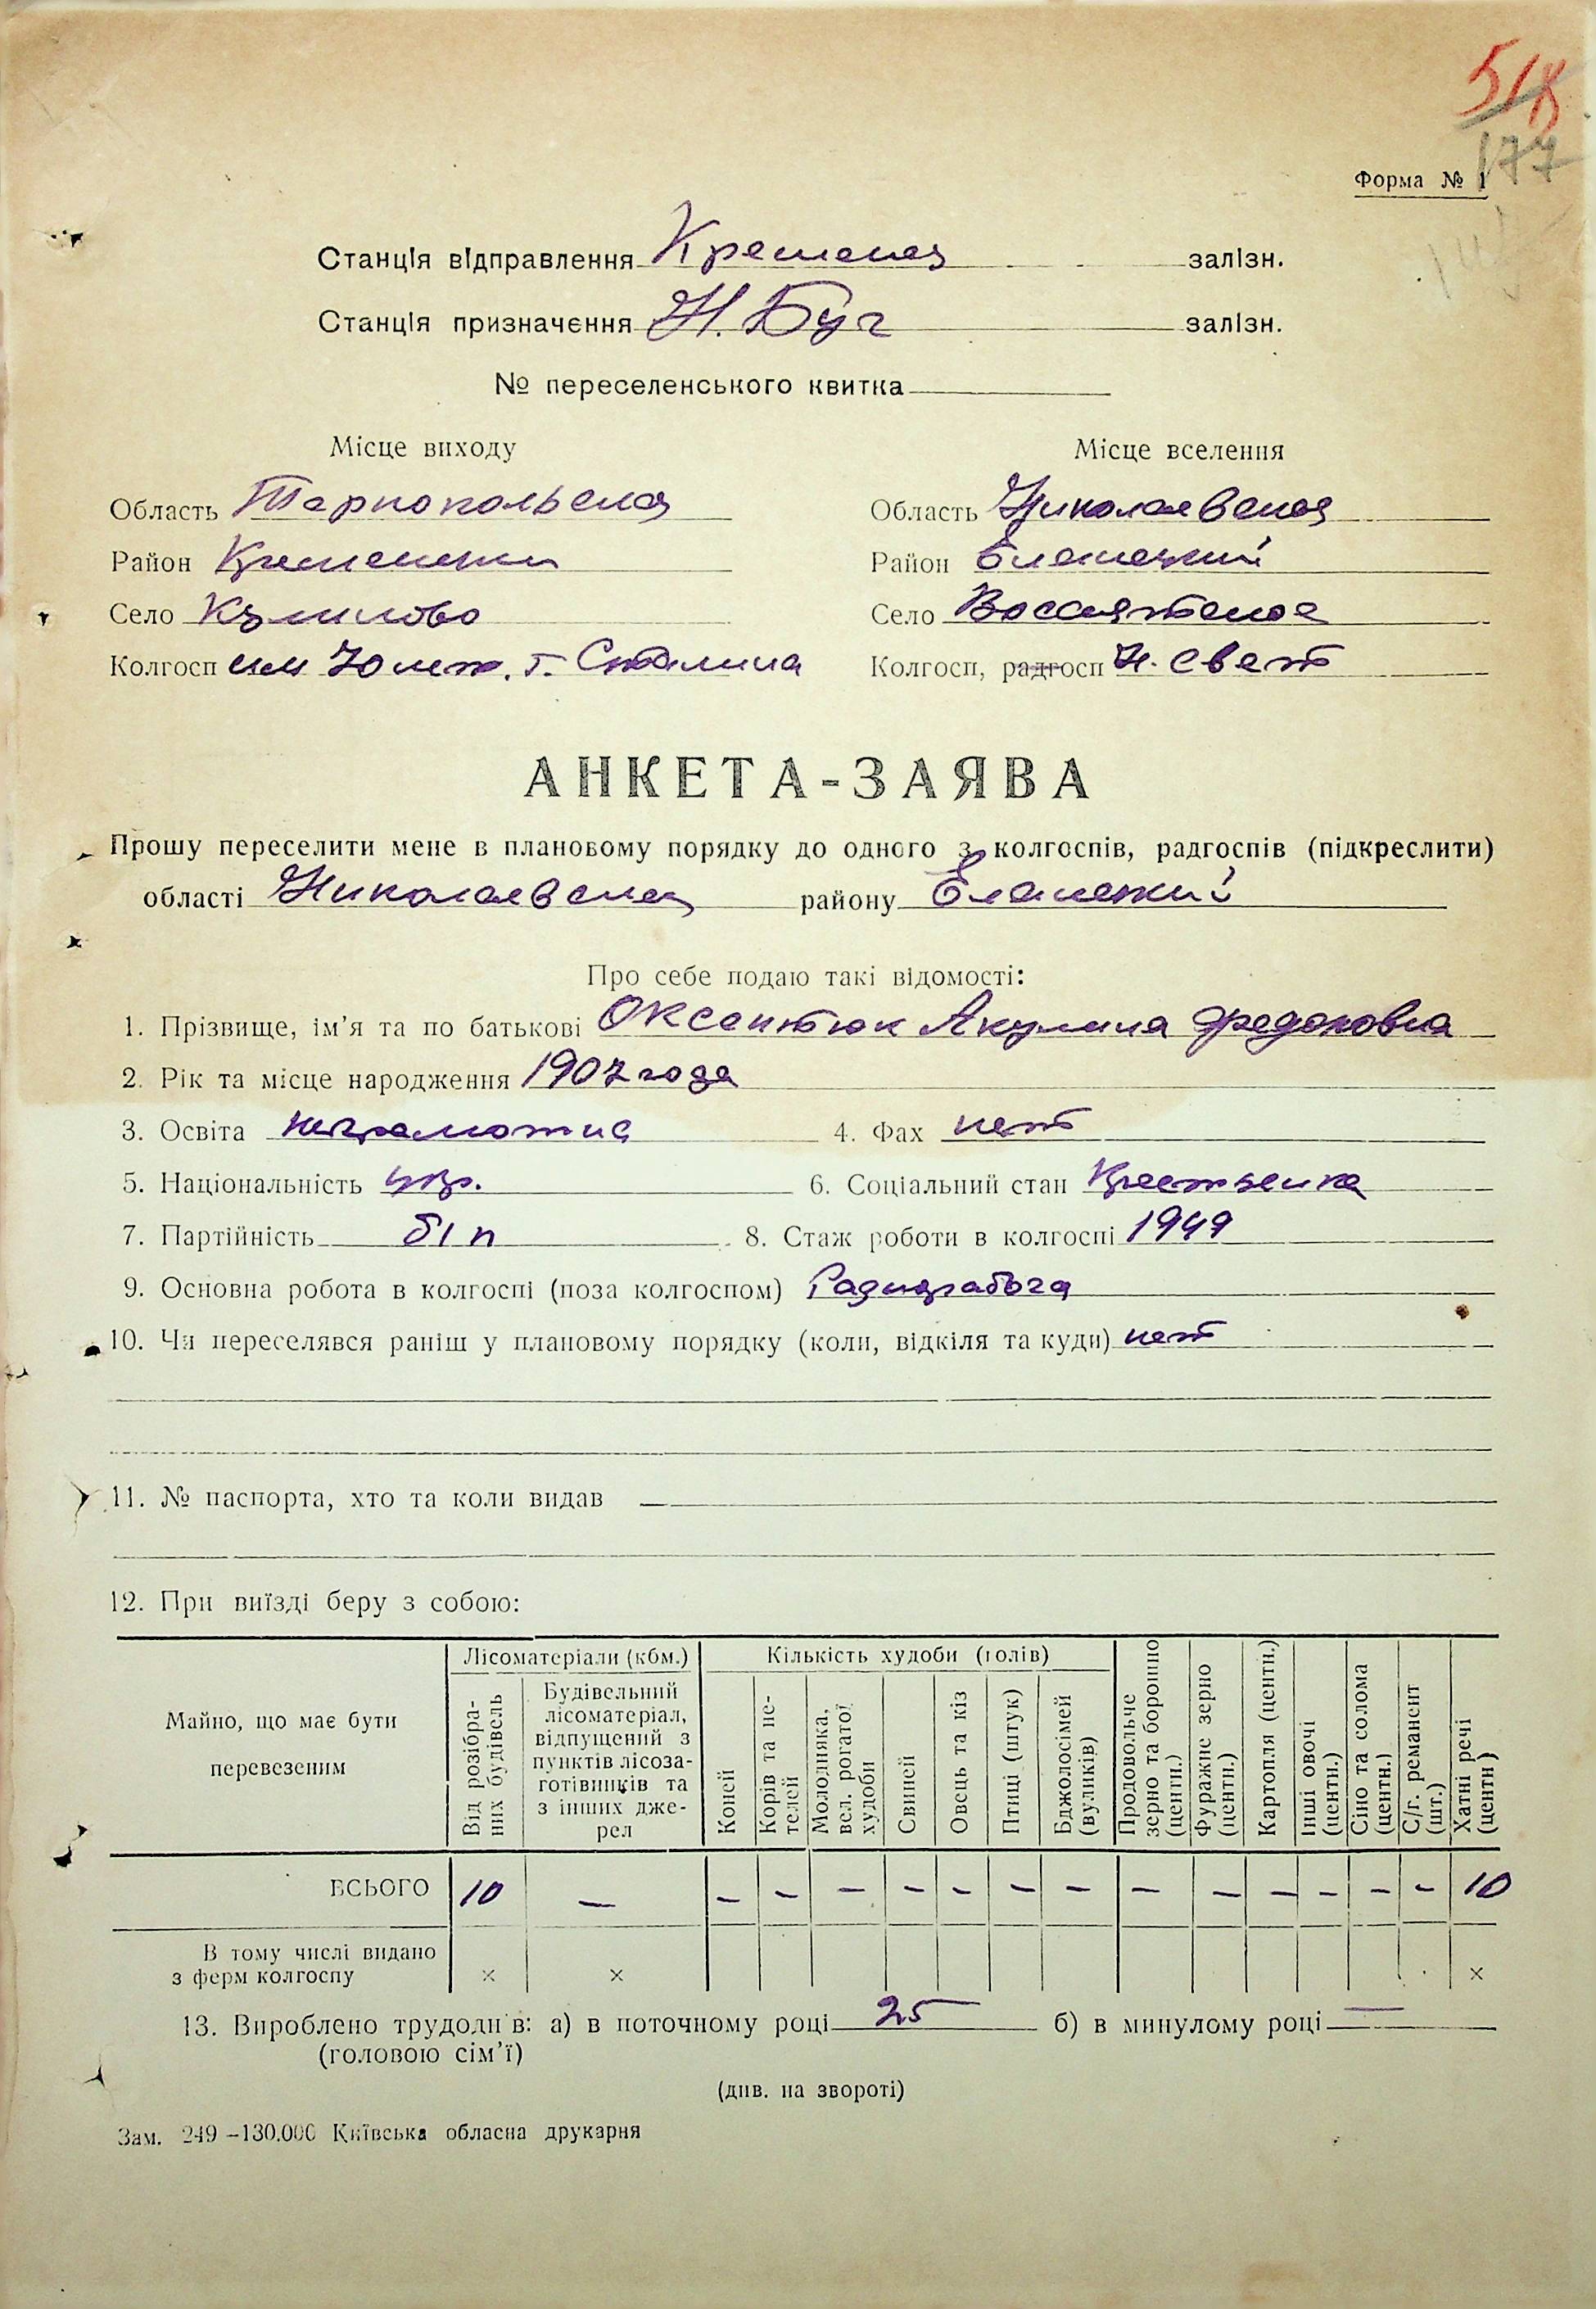 518
177
Форма № 1
Станція відправлення Кременец залізн.
Станція призначення Н. Буг залізн.
№ переселенського квитка
Місце виходу Місце вселення
Область Тернопольская Область Николаевская
Район Кременецкий Район Еланецкий
Село Куликово Село Воссиятское
Колгосп им 70 лет. т. Сталина Колгосп, радгосп Н. Свет
АНКЕТА-ЗАЯВА
Прошу переселити мене в плановому порядку до одного з колгоспів, радгоспів (підкреслити)
області Николаевская району Еланецкий
Про себе подаю такі відомості:
1. Прізвище, ім’я та по батькові Оксентюк Акулина Федоровна
2. Рік та місце народження 1907 года
3. Освіта неграмотна 4. Фах нет
5. Національність укр. 6. Соціальний стан Крестьянка
7. Партійність б/п 8. Стаж роботи в колгоспі 1949
9. Основна робота в колгоспі (поза колгоспом)
10. Чи переселявся раніш у плановому порядку (коли, відкіля та куди) нет
11. № паспорта, хто та коли видав —
12. При виїзді беру з собою:
Майно, що має бути перевезеним
Лісоматеріали (кбм.)
Від розібраних будівель
Будівельний лісоматеріал, відпущений з пунктів лісозаготівників та з інших джерел
Кількість худоби (голів)
Коней
Корів та нетелей
Молодняка, вел. рогатої худоби
Свиней
Овець та кіз
Птиці (штук)
Бджолосімей (вуликів)
Продовольче зерно та борошно (центн.)
Фуражне зерно (центн.)
Картопля (центн.)
Інші овочі (центн.)
Сіно та солома (центн.)
С/г. реманент (шт.)
Хатні речі (центн)
ВСЬОГО 10 — — — — — — — — — — — — — — 10
В тому числі видано
з ферм колгоспу × × ×
13. Вироблено трудоднів: а) в поточному році 25 б) в минулому році —
(головою сім’ї)
(див. на звороті)
Зам. 249—130.000 Київська обласна друкарня